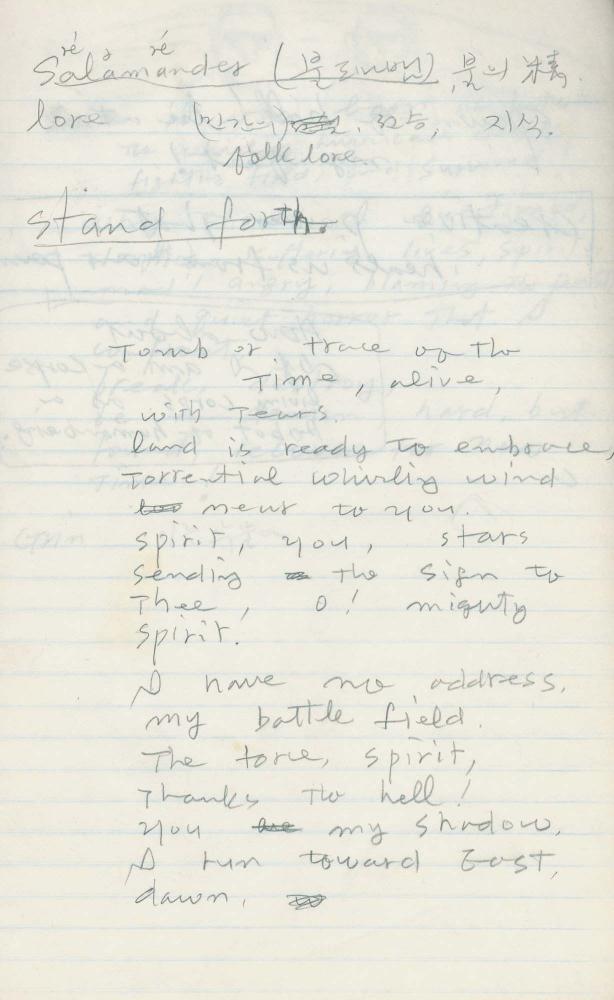 ré ré
Salamander (불도마뱀), 불의 精.
lore (민간의) 전승, 지식.
folk lore.
stand forth.
Tomb or trace of the
Time, alive,
with Tears.
land is ready to embrace,
Torrential whirling wind
near to you.
spirit, you, stars
sending the sign to
Thee, O! mighty
spirit.
I have no address,
my battle field.
The force, spirit,
Thanks the hell!
you my shadow,
I run toward East,
dawn,